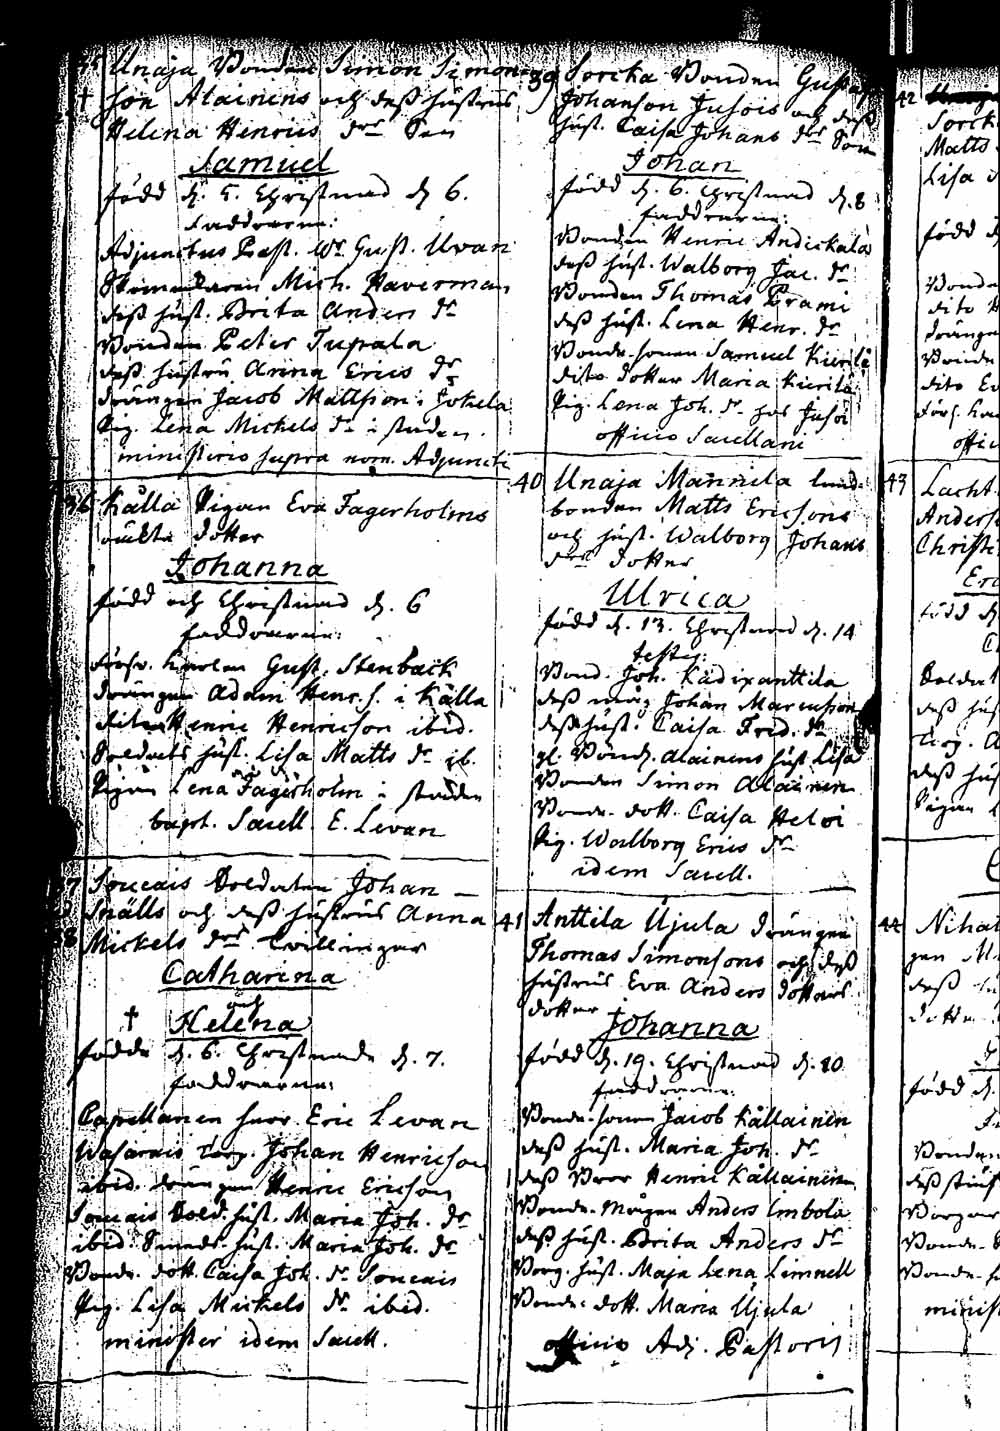 35 Unaja Bonden Simon Simon-
† son Alainens och dess hustrus
Helena Henrics drs Son
Samuel
född d. 5. Christnad d. 6.
faddrarne:
Adjunctus Past. Wr Gust. Levan
Mich. Haverman
dess hust. Brita Anders dr
Bonden Peter Tupala
dess hustru Anna Erics dr
drängen Jacob Mattsson i Jokela
Pig. Lena Mickels dr i staden.
ministerio supra nom. Adjuncti
36 Källa Pigan Eva Fagerholms
oäckta dotter
Johanna
född och Christnad d. 6
faddrarne:
Gust. Stenbäck
drängen Adam Henr. s. i Källa
dito Henric Henricson ibid.
Soldats hust. Lisa Matts dr ib.
Pigan Lena Fagerholm i staden
bapt. Sacell. E. Levan
37
38 Soucais Soldaten Johan
Snälls och dess hustrus Anna
Mickels drs Tvillingar
Catharina
och
† Helena
födde d. 6. Christnade d. 7.
faddrarne:
Capellanen herr Eric Levan
Wasarais Torp. Johan Henricson
ibid. drängen Henric Ericson
Soucais Sold. hust. Maria Joh. dr
ibid. Smeds hust. Maria Joh. dr
Bonde dott. Caisa Joh. dr Soucais
Pig. Lisa Mickels dr ibid.
minister idem Sacell.
39 Sorcka Bonden Gustaf
Johanson Jusois och dess
hust. Caisa Johans drs Son
Johan
född d. 6. Christnad d. 8
faddrarne:
Bonden Henric Andickala
dess hust. Walborg Jac. dr
Bonden Thomas Prami
dess hust. Lena Henr. dr
Bonde-sonen Samuel Kierilä
dito dotter Maria Kierilä
Pig. Lena Joh. dr hos Jusoi
officio Sacellani
40 Unaja Mannila land-
bonden Matts Ericsons
och hust. Walborg Johans
drs dotter
Ulrica
född d. 13. Christnad d. 14
testes:
Bond. Joh. Kädixanttila
dess måg Johan Marcusson
dess hust. Caisa Fred. dr
gl. Bond. Alainens hust. Lisa
Bonden Simon Alainen
Bonde dott. Caisa Heloi
Pig. Walborg Erics dr
idem Sacell.
41 Anttila Ujula drängen
Thomas Simonsons och dess
hustrus Eva Anders dotters
dotter
Johanna
född d. 19. Christnad d. 20
faddrarne:
Bonde-sonen Jacob Källainen
dess hust. Maria Joh. dr
dess Bror Henric Källainen
Bonde-mågen Anders Imbola
dess hust. Brita Anders dr
Borg. hust. Maja Lena Limnell
Bonde-dott. Maria Ujula
officio Adj. Pastoris
42
Sorck
Matts
Lisa
född d
Bonde
dito
dränge
Bonde
dito Ev
offic
43 Lacht
Anders
Christi
Eri
född d
Soldat
dess hus
dess hus
Pigan
44 Nihat
gen M
dess hu
dotte
född d.
Bonden
dess
Borgar
Bonde-
Bonde-
minist